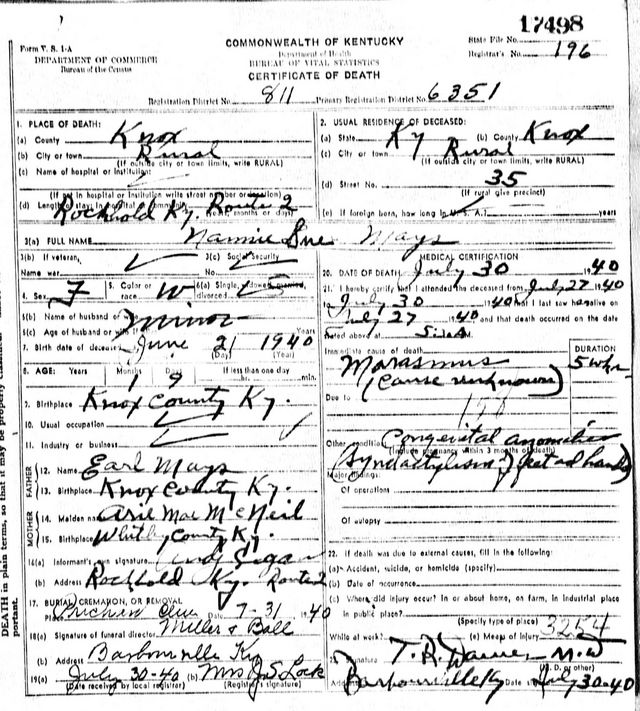 17498
Form V. S. 1-A
DEPARTMENT OF COMMERCE
Bureau of the Census
COMMONWEALTH OF KENTUCKY
Department of Health
BUREAU OF VITAL STATISTICS
CERTIFICATE OF DEATH
State File No.
Registrar's No. 196
Registration District No. 811 Primary Registration District No. 6351
1. PLACE OF DEATH:
(a) County Knox
(b) City or town Rural
(If outside city or town limits, write RURAL)
(c) Name of hospital or institution:
(If not in hospital or institution write street number or location)
(d) Length of stay: In hospital or community
Rockhold Ky. Route 2
2. USUAL RESIDENCE OF DECEASED:
(a) State Ky (b) County Knox
(c) City or town Rural
(If outside city or town limits, write RURAL)
(d) Street No. 35
(If rural give precinct)
(e) If foreign born, how long in U. S. A.? years
3(a) FULL NAME Nannie Sue Mays
3(b) If veteran, Name war
3(c) Social Security No.
4. Sex F 5. Color or race W 6(a) Single, widowed, married, divorced
6(b) Name of husband or
minor
6(c) Age of husband or wife if Years
7. Birth date of deceased June 21 1940
(Day) (Year)
8. AGE: Years Months Days If less than one day
1 9 hr. min.
9. Birthplace Knox County Ky.
10. Usual occupation
11. Industry or business
FATHER
12. Name Earl Mays
13. Birthplace Knox County Ky.
MOTHER
14. Maiden name Arie Mae McNeil
15. Birthplace Whitley County Ky.
16(a) Informant's own signature
(b) Address Rockhold Ky. Route 2
17. BURIAL, CREMATION, OR REMOVAL
Place Date 7-31 1940
18(a) Signature of funeral director Miller & Ball
(b) Address Barbourville Ky
19(a) July 30-40 (b) Mrs J S Lock
(Date received by local registrar) (Registrar's signature)
MEDICAL CERTIFICATION
20. DATE OF DEATH July 30 1940
21. I hereby certify that I attended the deceased from July 27 1940
to July 30 1940 that I last saw her alive on
July 27 1940 and that death occurred on the date
stated above at
Immediate cause of death DURATION
Marasmus 5 wks
(cause unknown)
Due to
158
Other conditions Congenital anomalies
(Include pregnancy within 3 months of death)
(Syndactylism?) feet and hands
Major findings:
Of operations
Of autopsy
22. If death was due to external causes, fill in the following:
(a) Accident, suicide, or homicide (specify)
(b) Date of occurrence
(c) Where did injury occur? In or about home, on farm, in industrial place
in public place?
(Specify type of place)
While at work? (e) Means of injury 3254
23. Signature T. R. M.D
(M. D. or other)
Address Barbourville Ky Date signed July 30-40
DEATH in plain terms, so that it may be properly classified
portant.